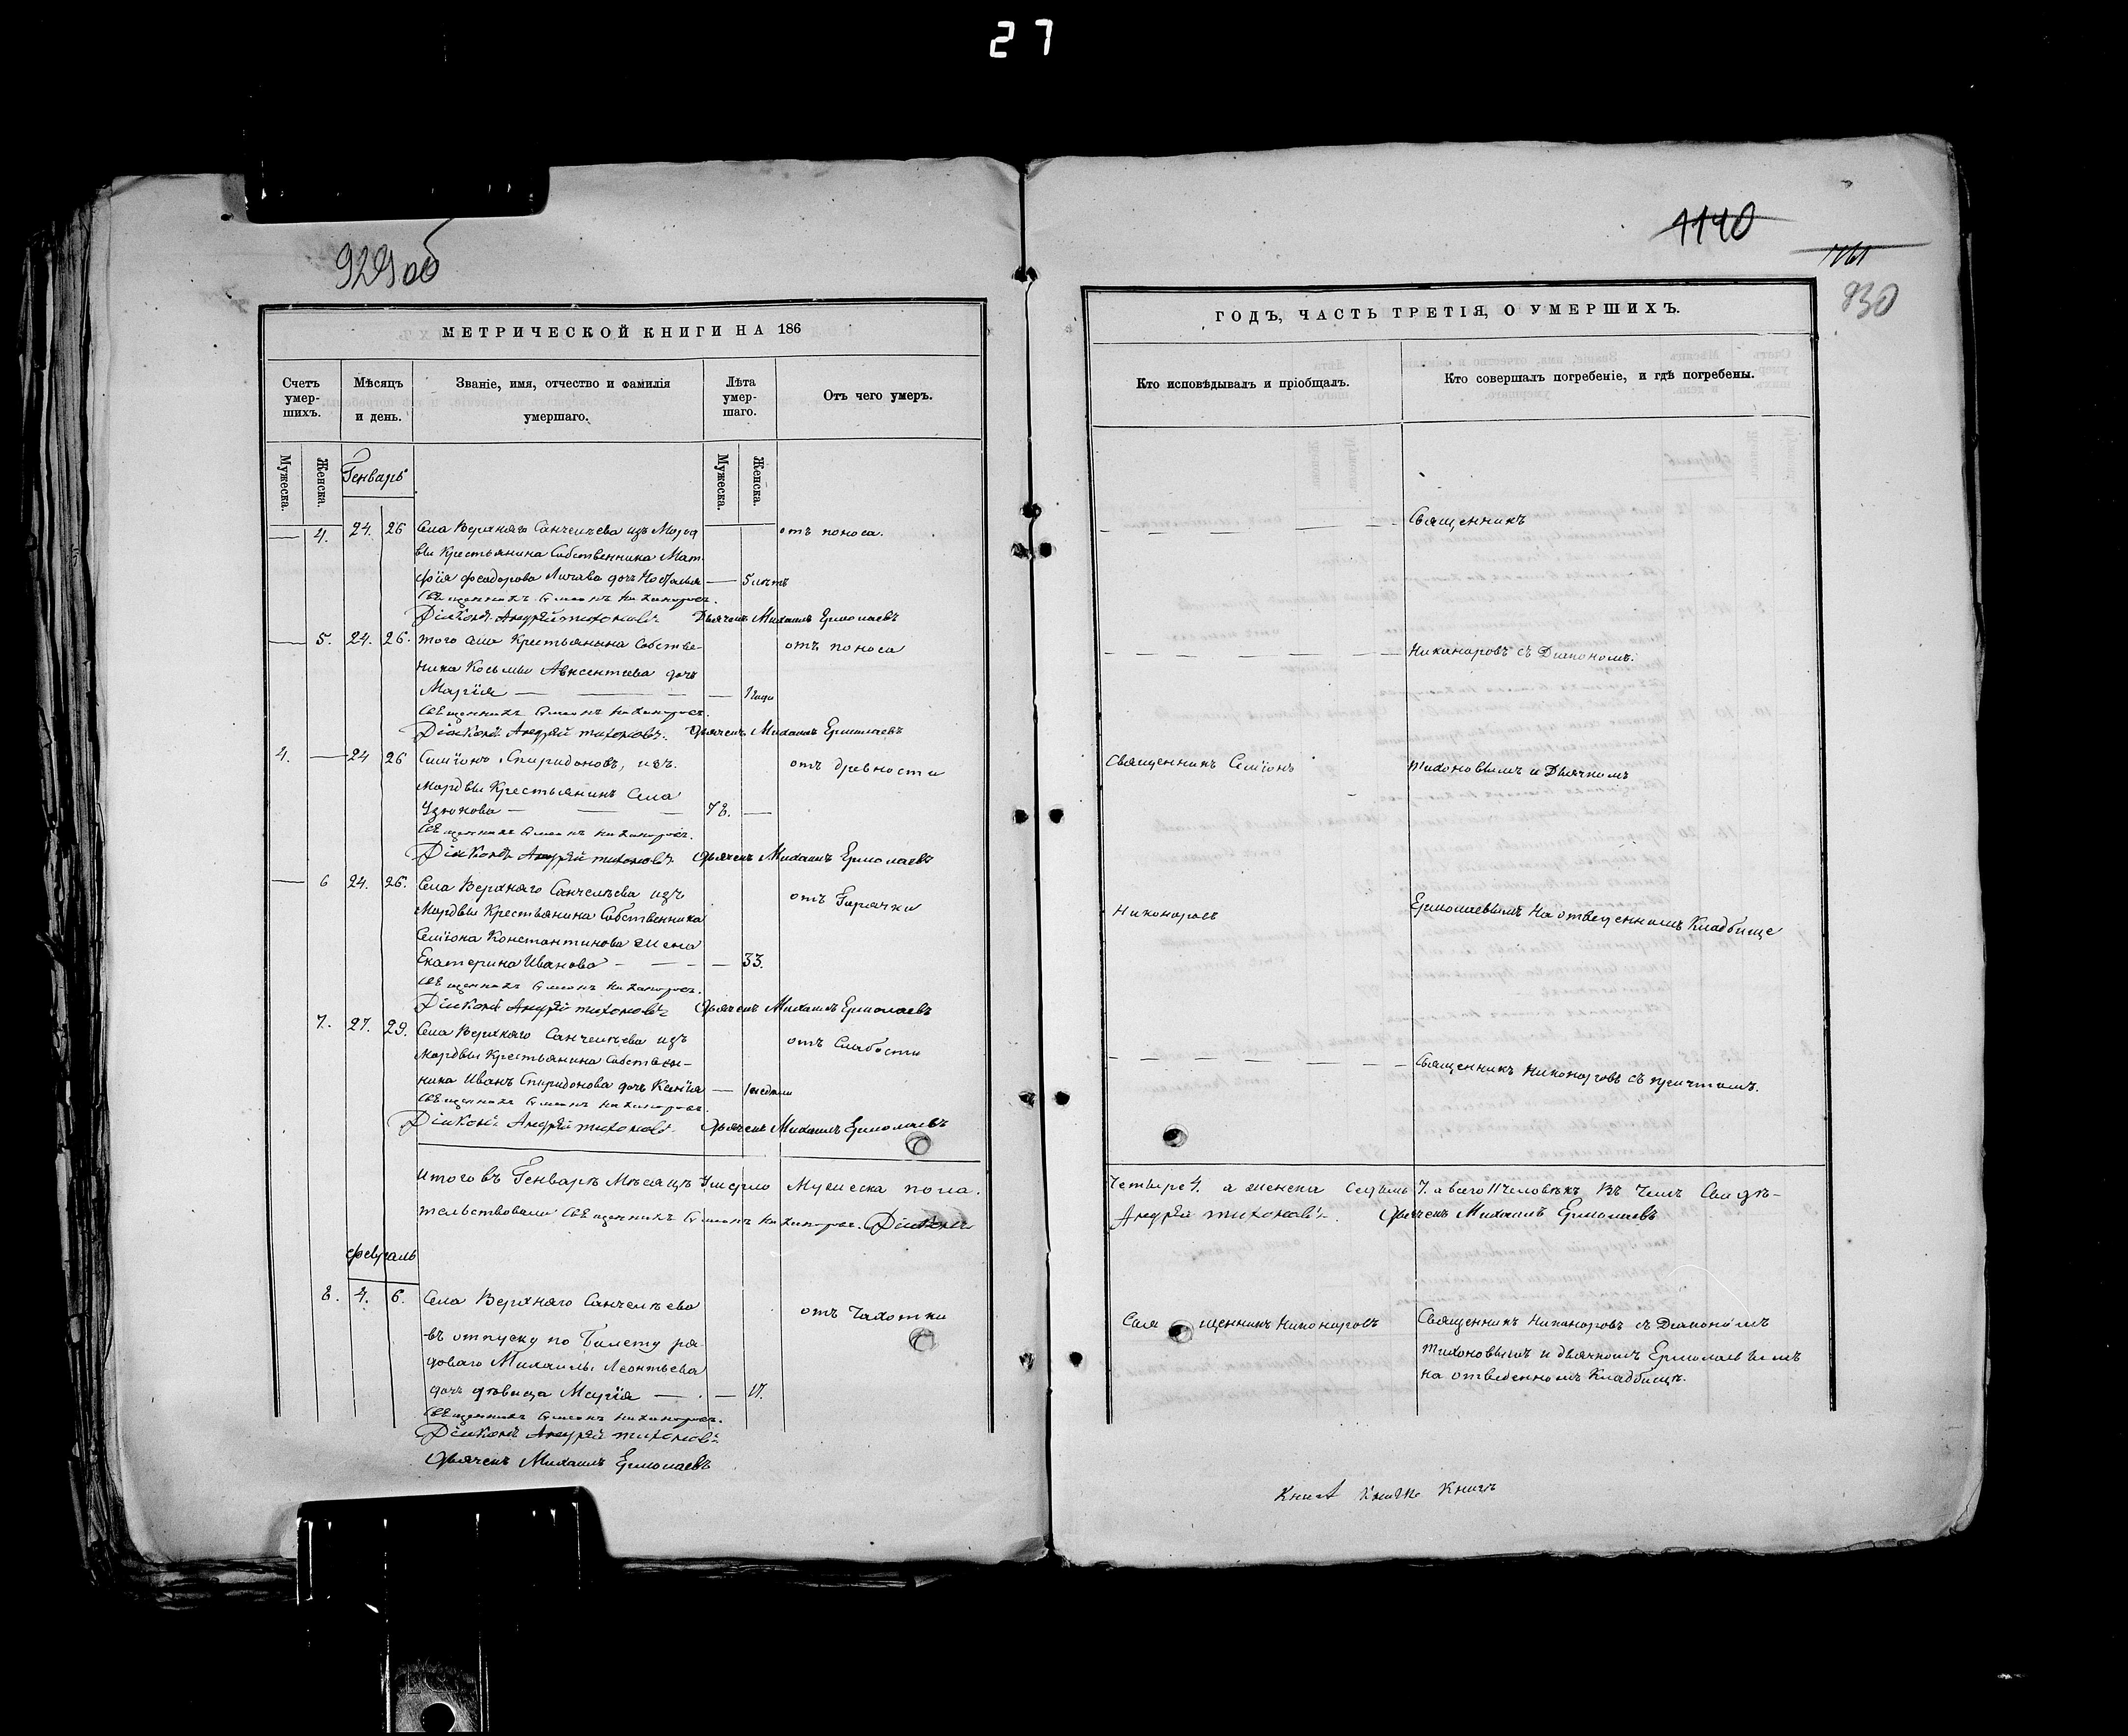 27
929 об
МЕТРИЧЕСКОЙ КНИГИ НА 186
Счетъ умер- шихъ.
Мѣсяцъ и день.
Званіе, имя, отчество и фамилія умершаго.
Лѣта умер- шаго.
Отъ чего умеръ.
Мужеска.
Женска.
Генварь
Мужеска.
Женска.
4. 24. 26 Села Верхняго Санчелѣева изъ Морд отъ поноса.
вы Крестьянина Собственника Мат
фія Феодорова дочь 5 лѣтъ
Священникъ Симеонъ Никаноровъ.
Діаконъ Андрей Тихоновъ Дьячекъ Михаилъ Ермолаевъ
5. 24. 26. того села Крестьянина Собстве- отъ поноса
ника Косьмы Авксентиева дочь
Марія 1 года
Священникъ Симеонъ Никаноровъ.
Діаконъ Андрей Тихоновъ. Дьячекъ Михаилъ Ермолаевъ
4. 24 26 Симіонъ Спиридоновъ, изъ отъ древности
Мордвы Крестьянинъ Села
Узюкова 78.
Священникъ Симеонъ Никаноровъ.
Діаконъ Андрей Тихоновъ Дьячекъ Михаилъ Ермолаевъ
6 24. 26. Села Верхняго Санчелѣева изъ отъ Горячки
Мордвы Крестьянина Собственника
Семіона Константинова жена
Екатерина Иванова 33.
Священникъ Симеонъ Никаноровъ.
Діаконъ Андрей Тихоновъ Дьячекъ Михаилъ Ермолаевъ
7. 27. 29. Села Верхняго Санчелѣева изъ отъ Слабости
Мордвы Крестьянина Собствен-
ника Иванъ Спиридонова дочь Ксенія 1 недели
Священникъ Симеонъ Никаноровъ.
Діаконъ Андрей Тихоновъ Дьячекъ Михаилъ Ермолаевъ
Итого въ Генварѣ Мѣсяцѣ Умерло Мужеска пола.
тельствовали Священникъ Симеонъ Никаноровъ. Діаконъ
февраль
8. 4. 6. Села Верхняго Санчелѣева отъ Чахотки
въ отпуску по Билету ря
доваго Михаилы Леонтьева
дочь дѣвица Марія 17.
Священникъ Симеонъ Никаноровъ.
Діаконъ Андрей Тихоновъ
Дьячекъ Михаилъ Ермолаевъ
1140
1161
930
ГОДЪ, ЧАСТЬ ТРЕТІЯ, О УМЕРШИХЪ.
Кто исповѣдывалъ и пріобщалъ.
Кто совершалъ погребеніе, и гдѣ погребены.
Священникъ
Никаноровъ съ Діакономъ.
Священникъ Семіонъ
Тихоновымъ и Дьячкомъ
Никоноровъ
Ермолаевымъ На отведенномъ Кладбище
Священникъ Никоноровъ съ причтомъ.
Четыре 4. а женска Седьмь 7. а всего 11 человѣкъ Въ Чемъ Свидѣ-
Андрей Тихоновъ. Дьячекъ Михаилъ Ермолаевъ
Священникъ Никоноровъ
Священникъ Никаноровъ съ Діакономъ
Тихоновымъ и дьячкомъ Ермолаевымъ
на отведенномъ Кладбищѣ.